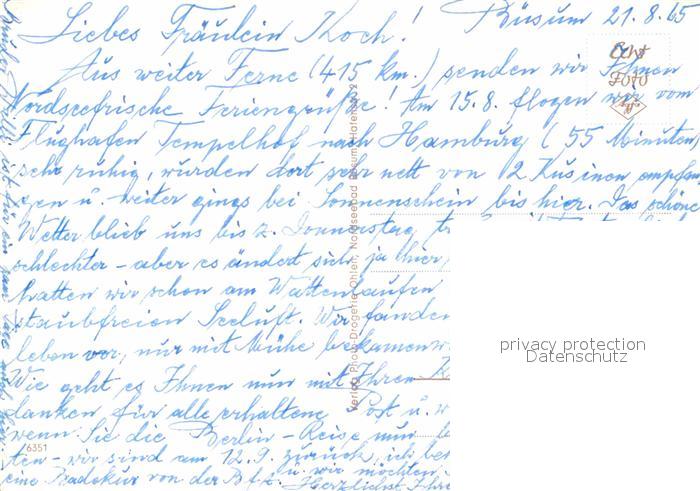 Büsum 21.8.65
Liebes Fräulein Koch!
Aus weiter Ferne (415 km.) senden wir Ihnen
Nordseefrische Feriengrüße! Am 15.8. flogen wir vom
Flughafen Tempelhof nach Hamburg (55 Minuten,
sehr ruhig, wurden dort sehr nett von 2 Kusinen empfan
gen u. weiter gings bei Sonnenschein bis hier. Das schöne
Wetter blieb uns bis z. Donnerstag,
schlechter - aber es ändert sich ja hier,
hatten wir schon am Wattenlaufen
staubfreien Seeluft. Wir fanden
leben vor, nur mit Mühe bekamen
Wie geht es Ihnen nun mit Ihren
danken für alle erhaltene Post u.
wenn Sie die Berlin-Reise nun
ten - wir sind am 12.9. zurück, ich
eine Badekur von der B.f.A. u. wir möchten
Herzlichst Ihre
Echt
Foto
Verlag Photo-Drogerie Ohlen, Nordseebad Büsum, Hafenstr. 2
6351
privacy protection
Datenschutz